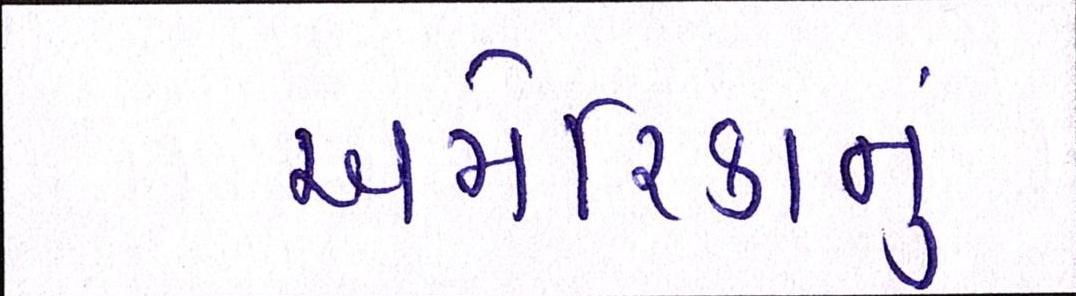 અમેરિકાનું